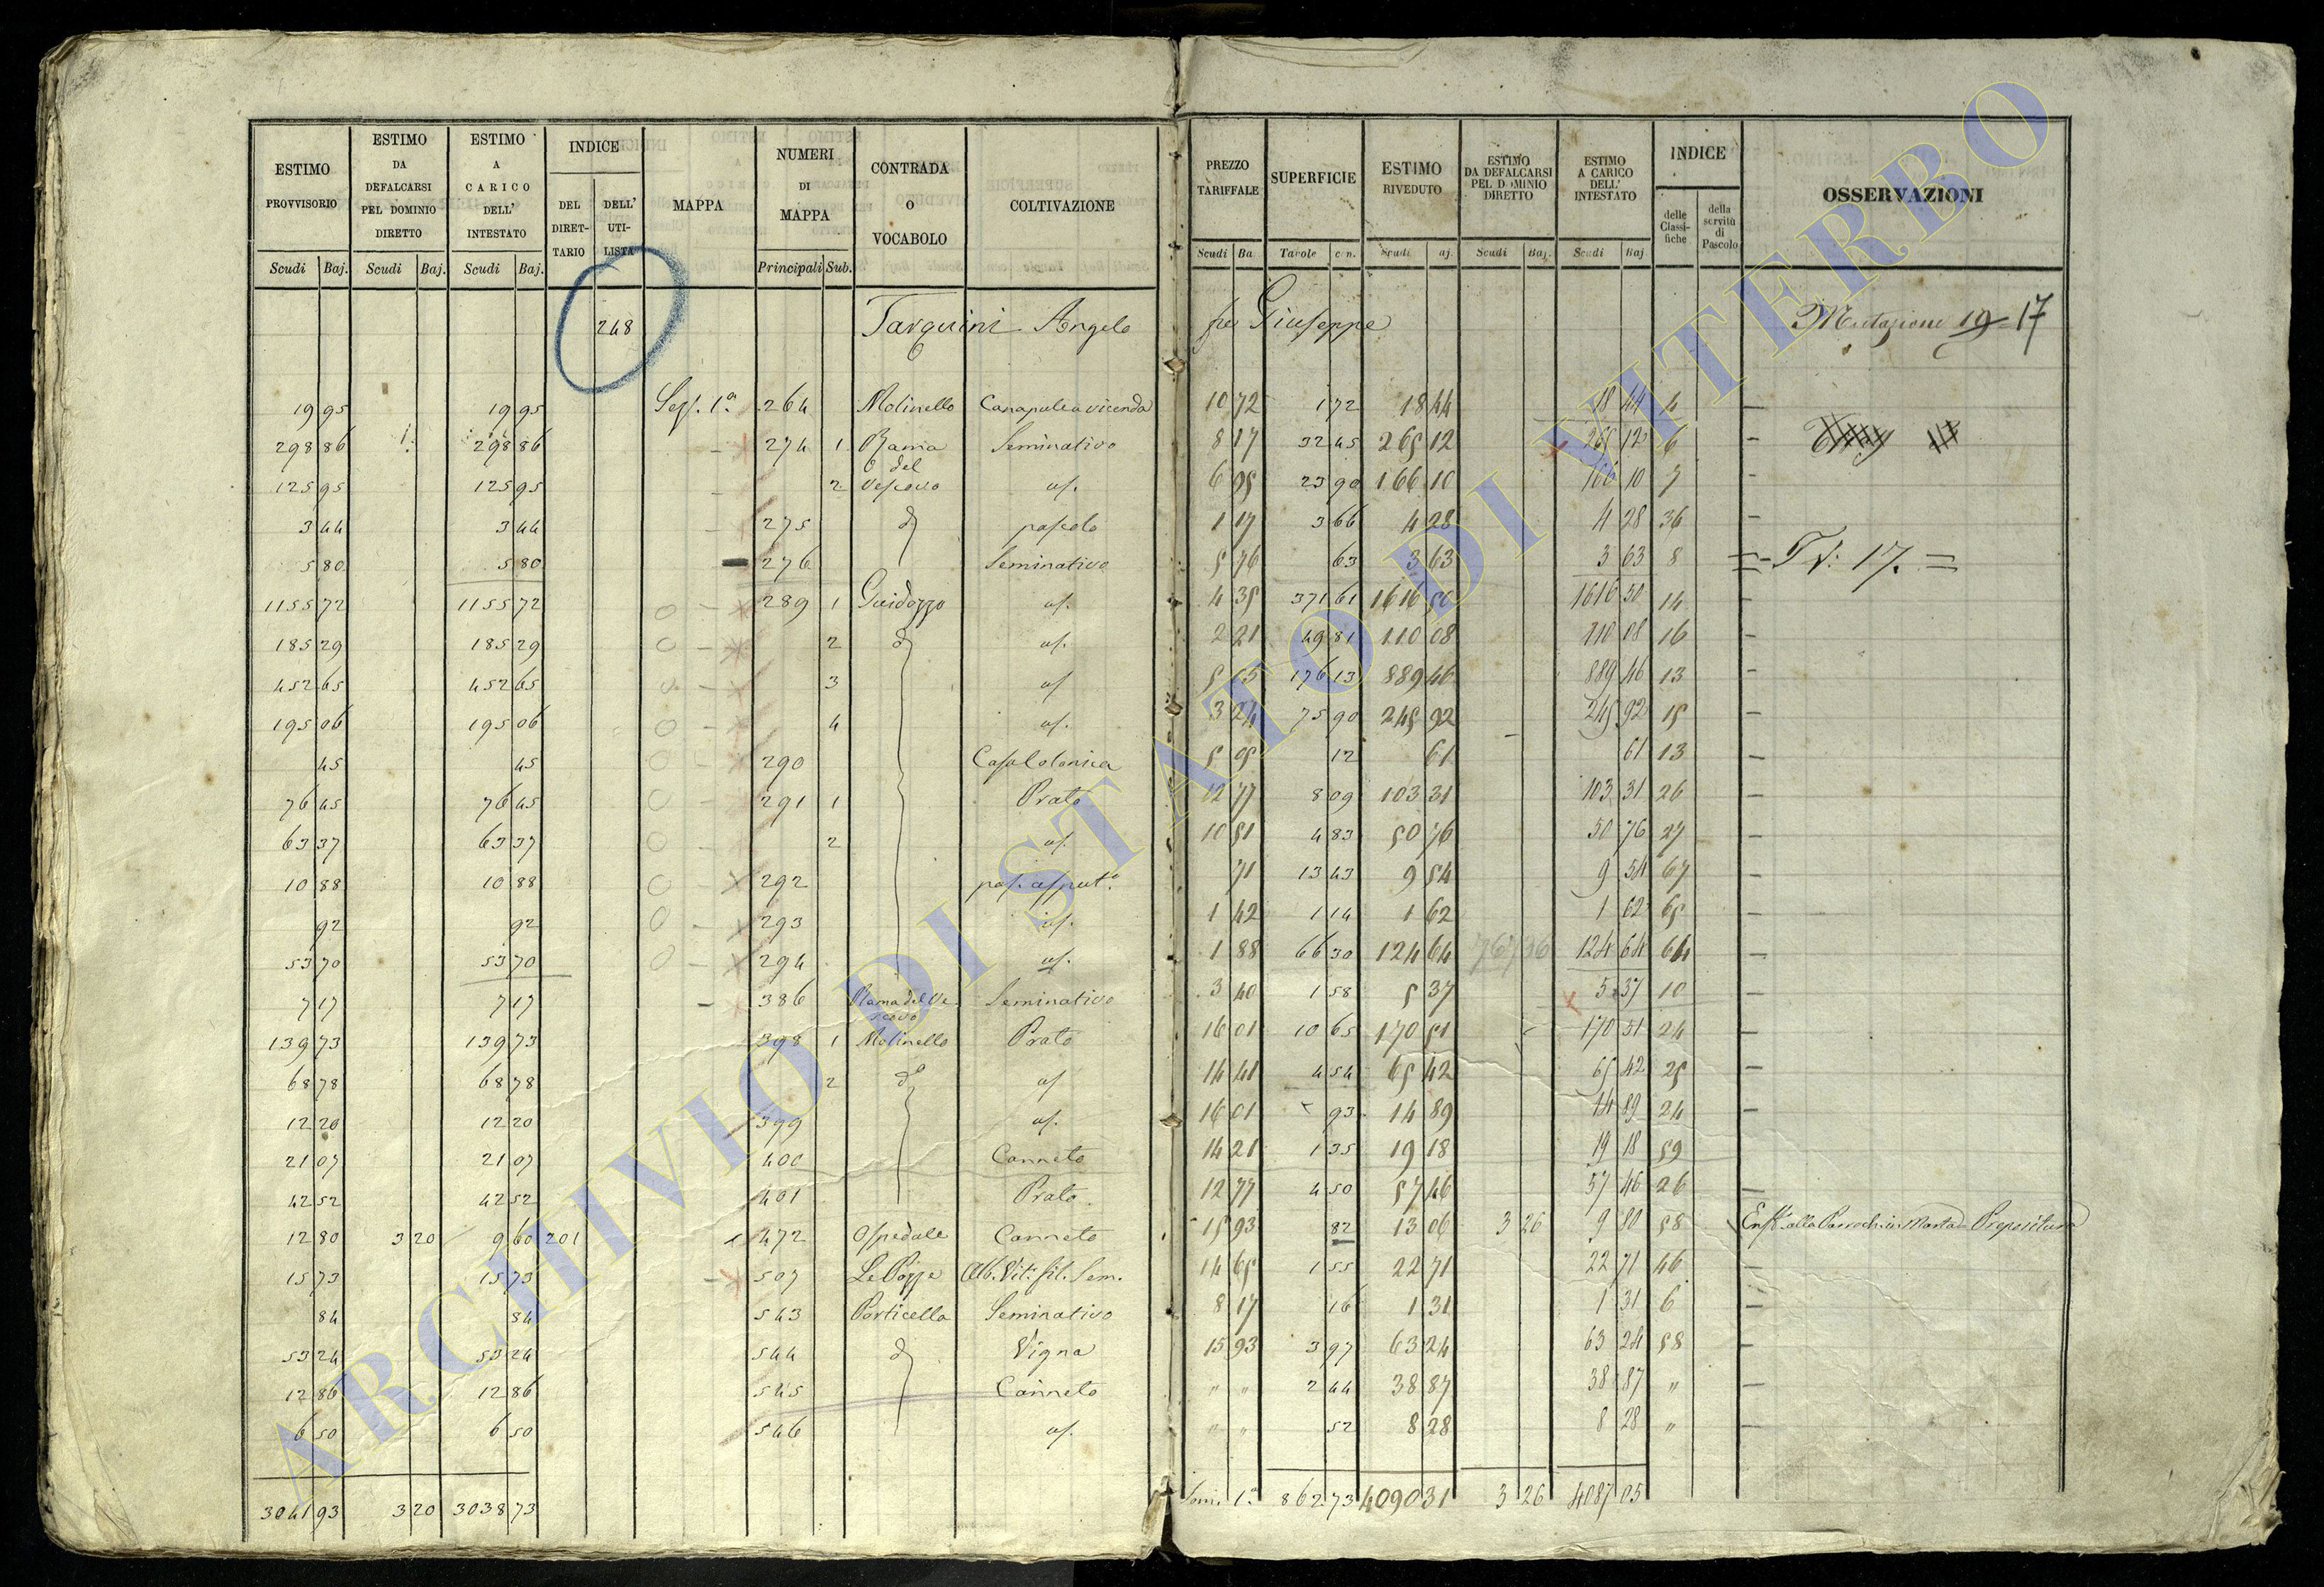 ESTIMO PROVVISORIO ESTIMO DA DEFALCARSI PEL DOMINIO DIRETTO ESTIMO A CARICO DELL' INTESTATO INDICE DEL DIRET-TARIO DELL' UTI-LISTA MAPPA NUMERI DI MAPPA CONTRADA O VOCABOLO COLTIVAZIONE PREZZO TARIFFALE SUPERFICIE ESTIMO RIVEDUTO ESTIMO DA DEFALCARSI PEL DOMINIO DIRETTO ESTIMO A CARICO DELL' INTESTATO INDICE delle Classi-fiche della servitù di Pascolo OSSERVAZIONI
Scudi Baj. Scudi Baj. Scudi Baj. Principali Sub. Scudi Ba Tavole c n. Scudi aj. Scudi Baj. Scudi Baj
248 Tarquini Angelo fu Giuseppe Mutazione 19 17
19 95 19 95 Sez. 1a. 264 Molinello Canapule a vicenda 10 72 1 72 18 44 18 44 4 –
298 86 298 86 274 1 Rama Seminativo 8 17 32 45 265 12 265 12 6 –
125 95 125 95 2 del Vescovo as. 6 95 23 90 166 10 166 10 7 –
3 44 3 44 275 d pascolo 1 17 3 66 4 28 4 28 36 –
5 80 5 80 276 Seminativo 5 76 63 3 63 3 63 8 = - T. 17. =
1155 72 1155 72 0 – 289 1 Guidozzo as. 4 35 371 61 1616 50 1616 50 14 –
185 29 185 29 0 – 2 d as. 2 21 49 81 110 08 110 08 16 –
452 65 452 65 0 – 3 as 5 05 176 13 889 46 889 46 13 –
195 06 195 06 0 – 4 as. 3 24 75 90 245 92 245 92 15 –
45 45 0 290 Casa Colonica 5 05 12 61 61 13 –
76 45 76 45 0 – 291 1 Prato 12 77 8 09 103 31 103 31 26 –
63 37 63 37 0 – 2 as. 10 51 4 83 50 76 50 76 27 –
10 88 10 88 0 – 292 pas. cesput.o 71 13 43 9 54 9 54 67 –
92 92 0 – 293 as. 1 42 1 14 1 62 1 62 65 –
53 70 53 70 0 – 294 as. 1 88 66 30 124 64 124 64 64 –
7 17 7 17 – 386 Rama del Ve-scovo Seminativo 3 40 1 58 5 37 5 37 10 –
139 73 139 73 398 1 Molinello Prato 16 01 10 65 170 51 170 51 24 –
68 78 68 78 2 do as 14 41 4 54 65 42 65 42 25 –
12 20 12 20 399 as. 16 01 93 14 89 14 89 24 –
21 07 21 07 400 Canneto 14 21 1 35 19 18 19 18 59 –
42 52 42 52 401 Prato 12 77 4 50 57 46 57 46 26 –
12 80 3 20 9 60 201 472 Ospedale Canneto 15 93 82 13 06 3 26 9 80 58 Enf. alla Parrochia in Marta Propositura
15 73 15 73 507 Le Pozze Alb. Vit. fil. Sem. 14 65 1 55 22 71 22 71 46 –
84 84 543 Particella Seminativo 8 17 16 1 31 1 31 6 –
53 24 53 24 544 d Vigna 15 93 3 97 63 24 63 24 58 –
12 86 12 86 545 Canneto " " 2 44 38 87 38 87 " –
6 50 6 50 546 as. " " 52 8 28 8 28 " –
3041 93 3 20 3038 73 Som. 1a 862 73 4090 31 3 26 4087 05
ARCHIVIO DI STATO DI VITERBO